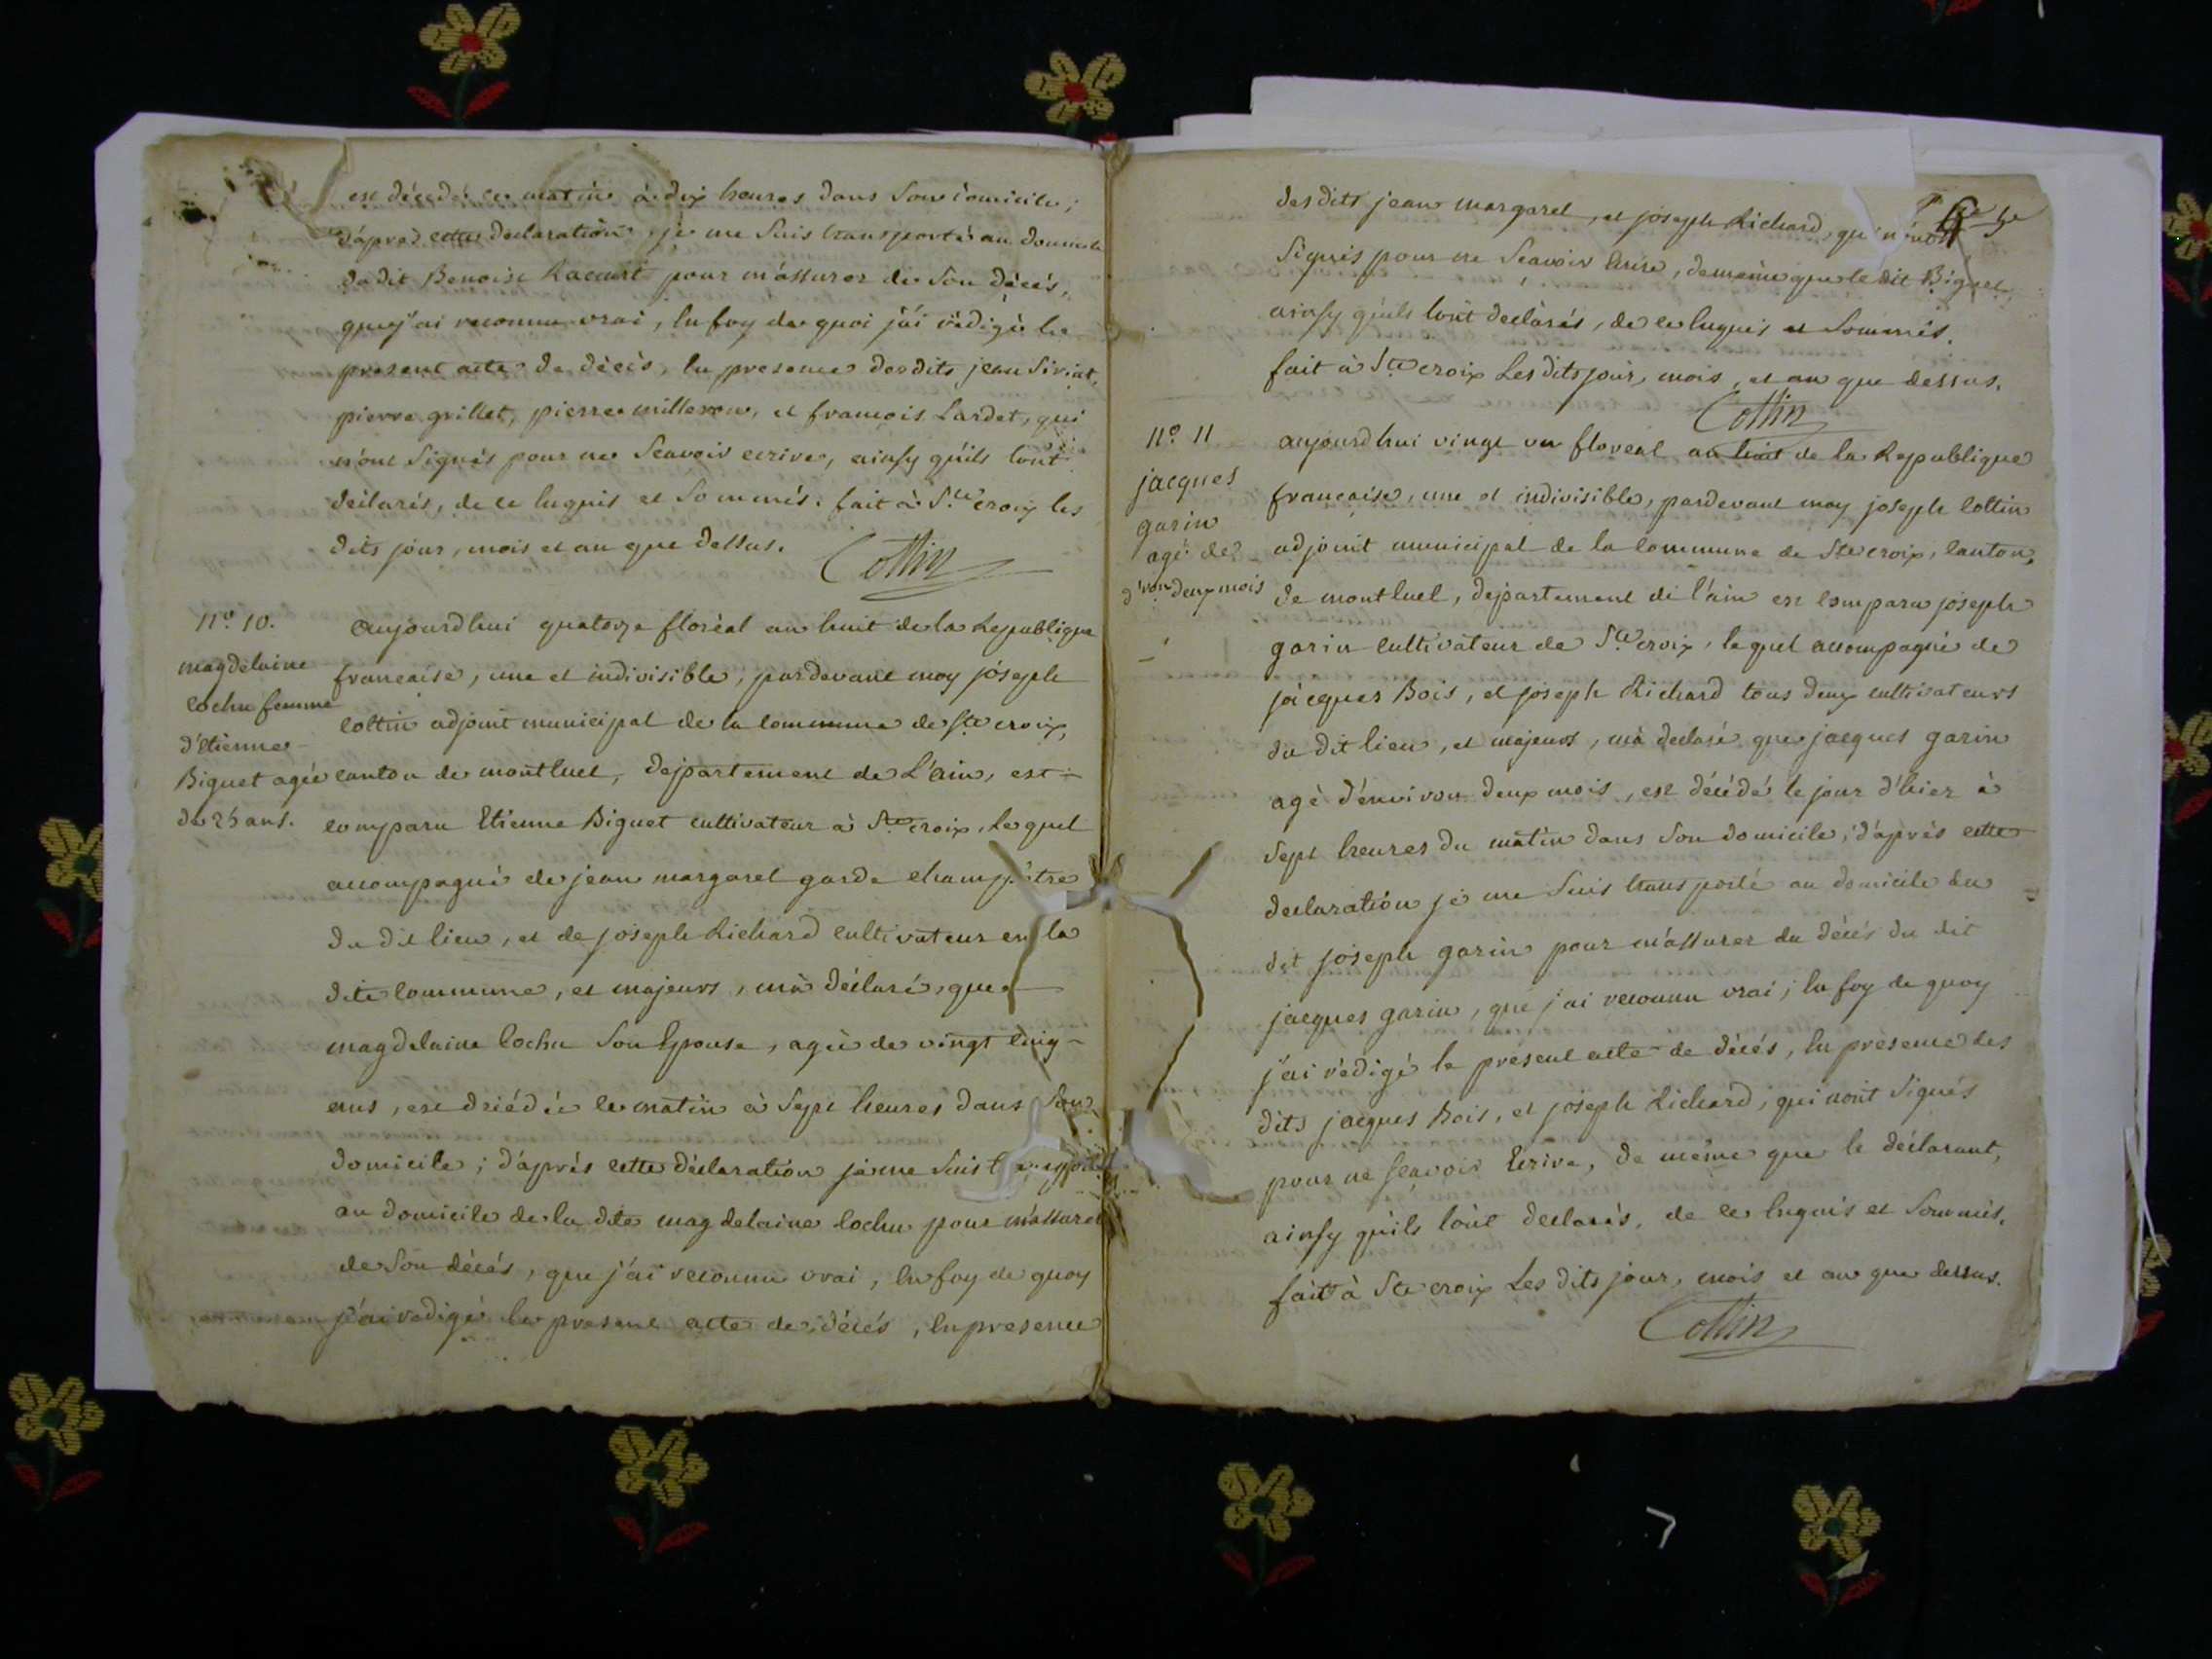 est décédé ce matin à dix heures dans son domicile;
d'après cette declaration, je me suis transporté au domicile
du dit Benoist Racurt pour m'assurer de son décès,
que j'ai reconnu vrai, En foy de quoi j'ai rédigé le
present acte de décès, En presence desdits jean Siriat,
pierre grillet, pierre milleron, et françois Lardet, qui
n'ont signés pour ne Scavoir ecrire, ainsy qu'ils l'ont
déclarés, de ce Enquis et Sommés. fait à Ste croix les
dits jour, mois et an que dessus.
Cottin
N° 10.
magdelaine
cochu femme
d'étienne
Biguet agée
de 25 ans.
aujourdhui quatorze floréal an huit de la Republique
francaise, une et indivisible, pardevant moy joseph
Cottin adjoint municipal de la commune de Ste croix,
canton de montluel, departement de L'ain, est
comparu Etienne Biguet cultivateur à Ste croix, Lequel
accompagné de jean margarel garde champêtre
du dit lieu, et de joseph Richard cultivateur en la
dite commune, et majeurs, m'a déclaré, que
magdelaine Cochu Son Epouse, agée de vingt cinq
ans, est décédée ce matin à Sept heures dans Son
domicile; d'après cette déclaration je me suis transporté
au domicile de la dite magdelaine Cochu pour m'assurer
de Son décés, que j'ai reconnu vrai, En foy de quoy
j'ai redigé le present acte de décés, En presence
5e
desdits jean margarel, et joseph Richard, qui n'ont
Signés pour ne Scavoir Ecrire, de même que le dit Biguet,
ainsy qu'ils l'ont declarés, de ce Enquis et Sommés.
fait à Ste croix Les dits jour, mois, et an que dessus.
Cottin
N° 11
jacques
garin
agé de
d'von deux mois
aujourdhui vingt un floreal an huit de la Republique
francaise, une et indivisible, pardevant moy joseph Cottin
adjoint municipal de la commune de Ste croix, canton,
de montluel, departement de l'ain est comparu joseph
garin cultivateur de Ste croix, lequel accompagné de
jacques Bois, et joseph Richard tous deux cultivateurs
du dit lieu, et majeurs, m'a declaré que jacques garin
agé d'environ deux mois, est décédé le jour d'hier à
Sept heures du matin dans Son domicile; d'aprés cette
declaration je me Suis transporté au domicile du
dit joseph garin pour m'assurer du décés du dit
jacques garin, que j'ai reconnu vrai; En foy de quoy
j'ai rédigé le présent acte de décés, En présence des
dits jacques Bois, et joseph Richard, qui n'ont Signés
pour ne sçavoir Ecrire, de même que le déclarant,
ainsy qu'ils l'ont declarés, de ce Enquis et Sommés.
fait à Ste croix Les dits jour, mois et an que dessus.
Cottin